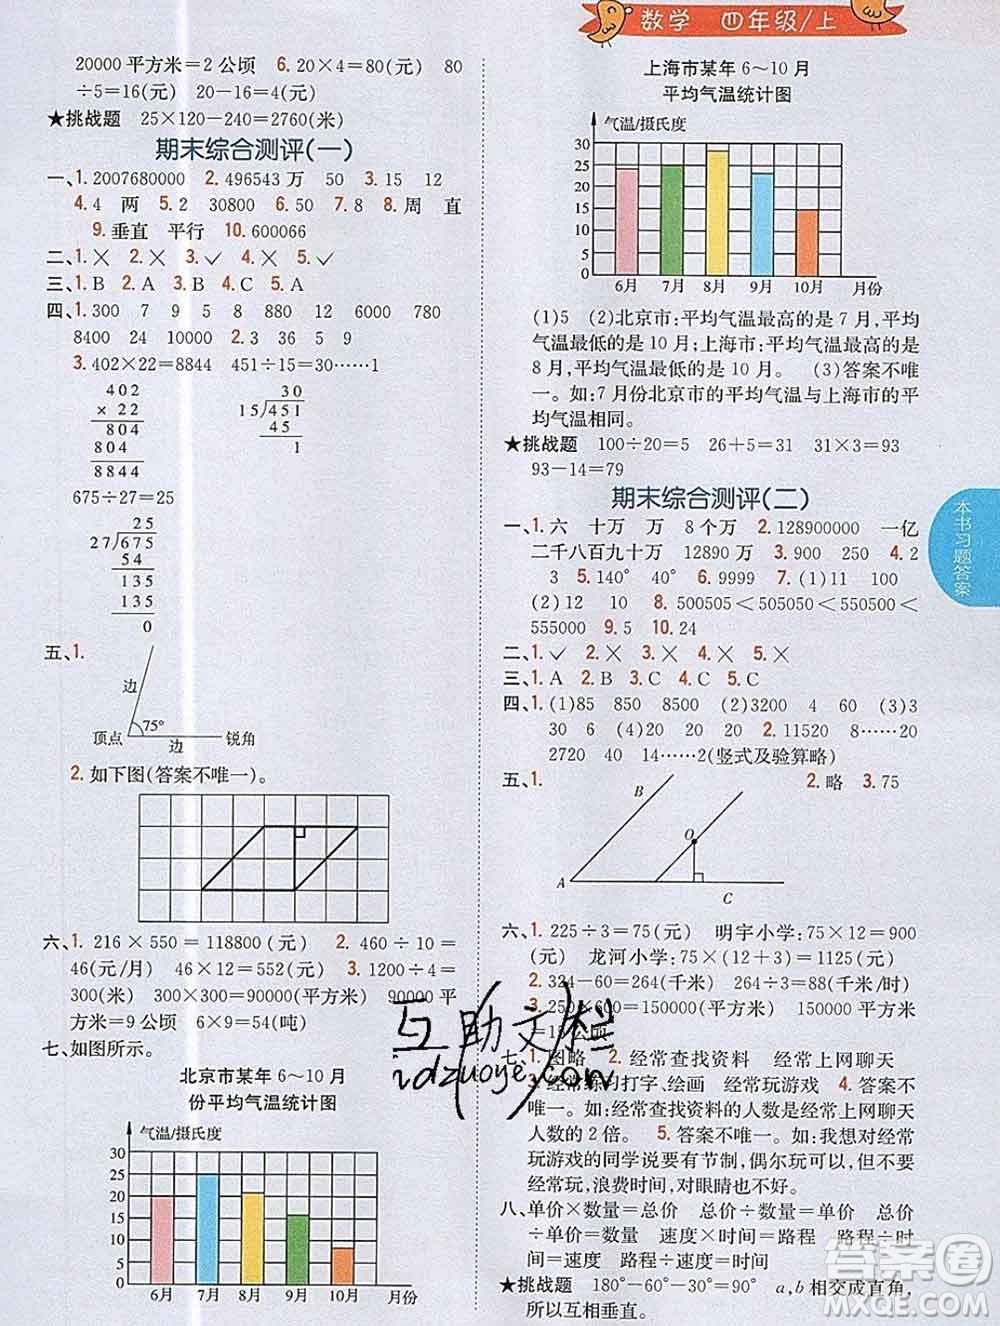 数学 四年级/上
20000 平方米=2 公顷 6. 20×4=80(元) 80
÷5=16(元) 20-16=4(元)
★挑战题 25×120-240=2760(米)
期末综合测评(一)
一、1. 2007680000 2. 496543 万 50 3. 15 12
4. 4 两 5. 2 30800 6. 50 7. 8 8. 周 直
9. 垂直 平行 10. 600066
二、1. × 2. × 3. ✓ 4. × 5. ✓
三、1. B 2. A 3. B 4. C 5. A
四、1. 300 7 9 5 8 880 12 6 780
8400 24 8400 2. > < = > > <
3. 402×22=8844 451÷15=30……1
402
× 22
804
804
8844
30
15 451
45
1
675÷27=25
25
27 675
54
135
135
0
五、1.
边
75°
顶点 边 锐角
2. 如下图(答案不唯一)。
六、1. 216×550=118800(元) 2. 460÷10=
46(元/月) 46×12=552(元) 3. 1200÷4=
300(米) 300×300=90000(平方米) 90000 平
方米=9 公顷 6×9=54(吨)
七、如图所示。
北京市某年 6~10 月
份平均气温统计图
气温/摄氏度
30
25
20
15
10
5
0
6月 7月 8月 9月 10月 月份
上海市某年 6~10 月
平均气温统计图
气温/摄氏度
30
25
20
15
10
5
0
6月 7月 8月 9月 10月 月份
(1)5 (2)北京市:平均气温最高的是 7 月,平均
气温最低的是 10 月;上海市:平均气温最高的是
8 月,平均气温最低的是 10 月。 (3)答案不唯
一。如:7 月份北京市的平均气温与上海市的平
均气温相同。
★挑战题 100÷20=5 26+5=31 31×3=
93 93-14=79
期末综合测评(二)
一、1. 六 十万 万 8 个万 2. 128900000 一亿
二千八百九十万 12890 万 3. 900 250 4. 2
3 5. 140° 40° 6. 9999 7. (1)11 100
(2)12 10 8. 500505<505050<550500<
555000 9. 5 10. 24
二、1. ✓ 2. × 3. × 4. × 5. ×
三、1. A 2. B 3. C 4. C
四、1. (1)85 850 8500 (2)3200 4 60 (3)3
330 36 (4)20 20 4 2. 11520 8……20
2720 40 14……2(竖式及验算略)
五、1. 2. 略 3. 75
B
O
A
C
六、1. 225÷3=75(元) 明宇小学:75×12=900
(元) 龙河小学:75×(12+3)=1125(元)
2. 324-60=264(千米) 264÷3=88(千米/时)
3. 250×600=150000(平方米) 150000 平方米
=15公顷
七、1. 图略 2. 经常查找资料 经常上网聊天
3. 经常练习打字、绘画 经常玩游戏 4. 答案不
唯一。如:经常查找资料的人数是经常上网聊天
人数的 2 倍。 5. 答案不唯一。如:我想对经常
玩游戏的同学说要有节制,偶尔玩可以,但不要
经常玩,浪费时间,对眼睛也不好。
八、单价×数量=总价 总价÷数量=单价 总价
÷单价=数量 速度×时间=路程 路程÷时
间=速度 路程÷速度=时间
★挑战题 180°-60°-30°=90° a,b 相交成直角,
所以互相垂直。
本书习题答案
互助文栏
idzuoye.com
答案圈
MXQE.COM